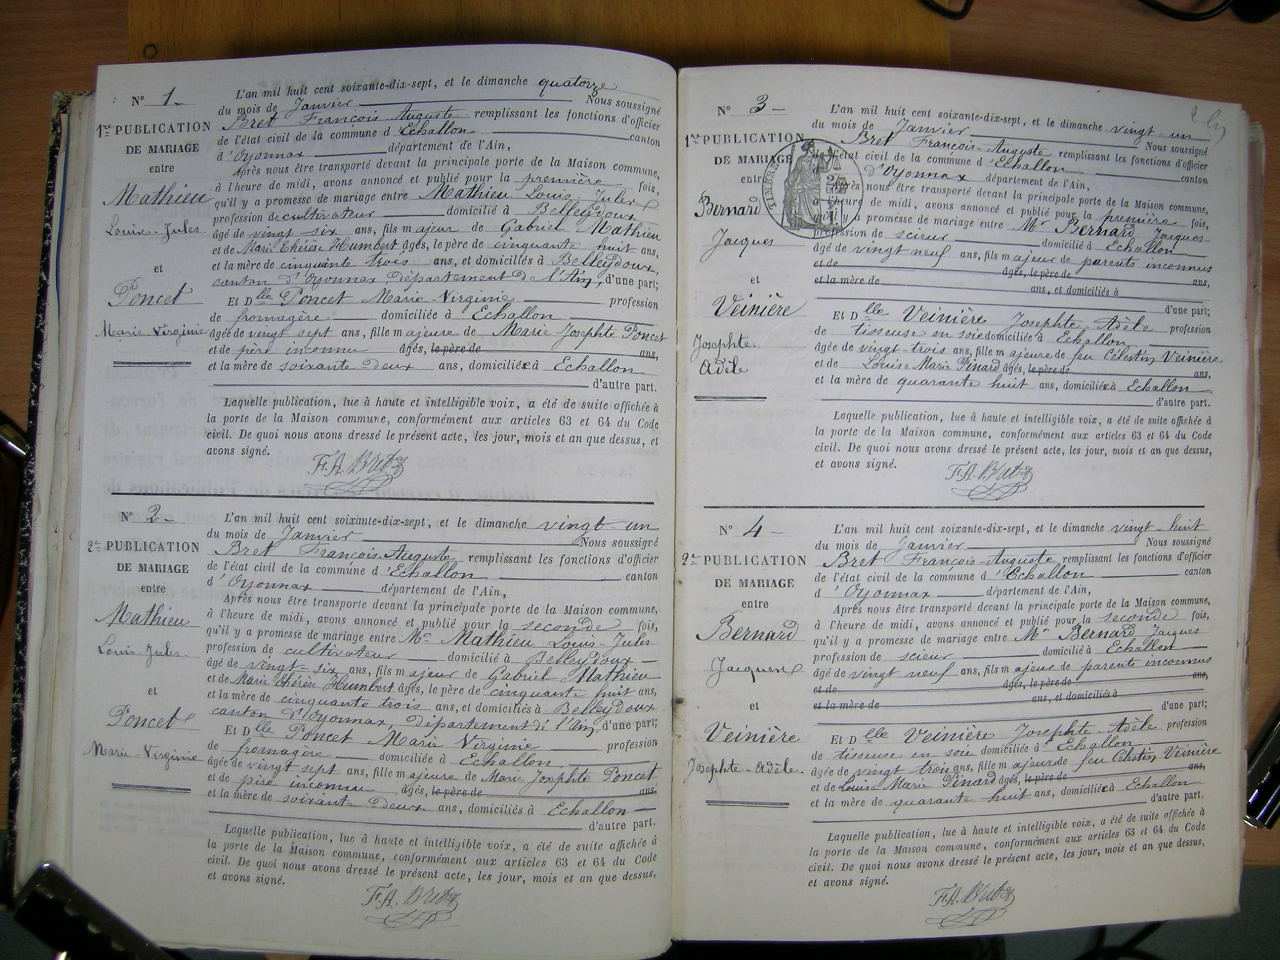 N° 1
1re PUBLICATION
DE MARIAGE
entre
Mathieu
Louis-Jules
et
Poncet
Marie Virginie
L'an mil huit cent soixante-dix-sept, et le dimanche quatorze
du mois de Janvier Nous soussigné
Bret François Auguste remplissant les fonctions d'officier
de l'état civil de la commune d'Echallon canton
d'Oyonnax département de l'Ain,
Après nous être transporté devant la principale porte de la Maison commune,
à l'heure de midi, avons annoncé et publié pour la première fois,
qu'il y a promesse de mariage entre Mathieu Louis Jules
profession de cultivateur domicilié à Belleydoux
âgé de vingt six ans, fils majeur de Gabriel Mathieu
et de Marie Thérèse Humbert âgés, le père de cinquante huit ans,
et la mère de cinquante trois ans, et domiciliés à Belleydoux,
canton d'Oyonnax département de l'Ain, d'une part;
Et Dlle Poncet Marie Virginie profession
de fromagère domiciliée à Echallon
âgée de vingt sept ans, fille majeure de Marie Josephte Poncet
et de père inconnu âgés, le père de ans,
et la mère de soixante deux ans, domiciliée à Echallon
d'autre part.
Laquelle publication, lue à haute et intelligible voix, a été de suite affichée à
la porte de la Maison commune, conformément aux articles 63 et 64 du Code
civil. De quoi nous avons dressé le présent acte, les jour, mois et an que dessus, et
avons signé.
F.A. Bret
N° 2
2e PUBLICATION
DE MARIAGE
entre
Mathieu
Louis Jules
et
Poncet
Marie Virginie
L'an mil huit cent soixante-dix-sept, et le dimanche vingt-un
du mois de Janvier Nous soussigné
Bret François-Auguste remplissant les fonctions d'officier
de l'état civil de la commune d'Echallon canton
d'Oyonnax département de l'Ain,
Après nous être transporté devant la principale porte de la Maison commune,
à l'heure de midi, avons annoncé et publié pour la seconde fois,
qu'il y a promesse de mariage entre Mr Mathieu Louis-Jules
profession de cultivateur domicilié à Belleydoux
âgé de vingt-six ans, fils majeur de Gabriel Mathieu
et de Marie Thérèse Humbert âgés, le père de cinquante huit ans,
et la mère de cinquante trois ans, et domiciliés à Belleydoux
canton d'Oyonnax, Département de l'Ain, d'une part;
Et Dlle Poncet Marie Virginie profession
de fromagère domiciliée à Echallon
âgée de vingt sept ans, fille majeure de Marie Josephte Poncet
et de père inconnu âgés, le père de ans,
et la mère de soixante deux ans, domiciliés à Echallon
d'autre part.
Laquelle publication, lue à haute et intelligible voix, a été de suite affichée à
la porte de la Maison commune, conformément aux articles 63 et 64 du Code
civil. De quoi nous avons dressé le présent acte, les jour, mois et an que dessus,
et avons signé.
F.A. Bret
N° 3
1re PUBLICATION
DE MARIAGE
entre
Bernard
Jacques
et
Veinière
Josephte
Adèle
L'an mil huit cent soixante-dix-sept, et le dimanche vingt-un
du mois de Janvier Nous soussigné
Bret François-Auguste remplissant les fonctions d'officier
de l'état civil de la commune d'Echallon canton
d'Oyonnax département de l'Ain,
Après nous être transporté devant la principale porte de la Maison commune,
à l'heure de midi, avons annoncé et publié pour la première fois,
qu'il y a promesse de mariage entre Mr Bernard Jacques
profession de scieur domicilié à Echallon
âgé de vingt neuf ans, fils majeur de parents inconnus
et de âgés, le père de ans,
et la mère de ans, et domiciliés à
d'une part;
Et Dlle Veinière Josephte-Adèle profession
de tisseuse en soie domiciliée à Echallon
âgée de vingt-trois ans, fille majeure de feu Célestin Veinière
et de Louise Marie Pinard âgés, le père de ans,
et la mère de quarante huit ans, domiciliée à Echallon
d'autre part.
Laquelle publication, lue à haute et intelligible voix, a été de suite affichée à
la porte de la Maison commune, conformément aux articles 63 et 64 du Code
civil. De quoi nous avons dressé le présent acte, les jour, mois et an que dessus,
et avons signé.
F.A. Bret
N° 4
2e PUBLICATION
DE MARIAGE
entre
Bernard
Jacques
et
Veinière
Josephte-Adèle
L'an mil huit cent soixante-dix-sept, et le dimanche vingt-huit
du mois de Janvier Nous soussigné
Bret François-Auguste remplissant les fonctions d'officier
de l'état civil de la commune d'Echallon canton
d'Oyonnax département de l'Ain,
Après nous être transporté devant la principale porte de la Maison commune,
à l'heure de midi, avons annoncé et publié pour la seconde fois,
qu'il y a promesse de mariage entre Mr Bernard Jacques
profession de scieur domicilié à Echallon
âgé de vingt neuf ans, fils majeur de parents inconnus
et de âgés, le père de ans,
et la mère de ans, et domiciliés à
d'une part;
Et Dlle Veinière Josephte Adèle profession
de tisseuse en soie domiciliée à Echallon
âgée de vingt trois ans, fille majeure de feu Célestin Veinière
et de Louise Marie Pinard âgés, le père de ans,
et la mère de quarante huit ans, domiciliée à Echallon
d'autre part.
Laquelle publication, lue à haute et intelligible voix, a été de suite affichée à
la porte de la Maison commune, conformément aux articles 63 et 64 du Code
civil. De quoi nous avons dressé le présent acte, les jour, mois et an que dessus,
et avons signé.
F.A. Bret